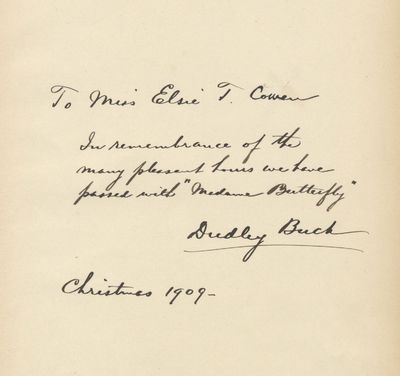 To Miss Elsie T. Cowen
In remembrance of the
many pleasant hours we have
passed with "Madame Butterfly"
Dudley Buck
Christmas 1909-